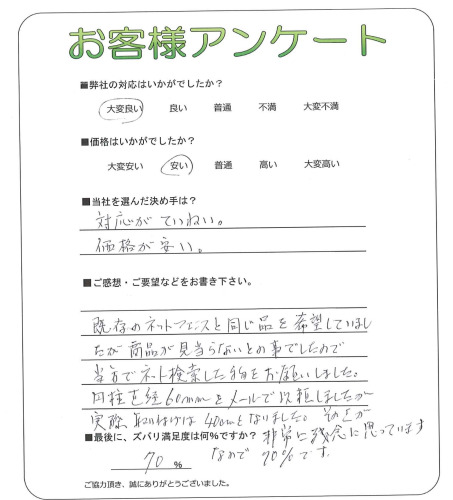 お客様アンケート
■弊社の対応はいかがでしたか？
大変良い 良い 普通 不満 大変不満
■価格はいかがでしたか？
大変安い 安い 普通 高い 大変高い
■当社を選んだ決め手は？
対応がていねい。
価格が安い。
■ご感想・ご要望などをお書き下さい。
既存のネットフェンスと同じ品を希望していまし
たが商品が見当らないとの事でしたので
当方でネット検索した物をお願いしました。
円柱直経60mmをメールで依頼しましたが
実際取り付けは40cmとなりました。その上が
非常に残念に思っています
なので 70%です。
■最後に、ズバリ満足度は何％ですか？
70 ％
ご協力頂き、誠にありがとうございました。